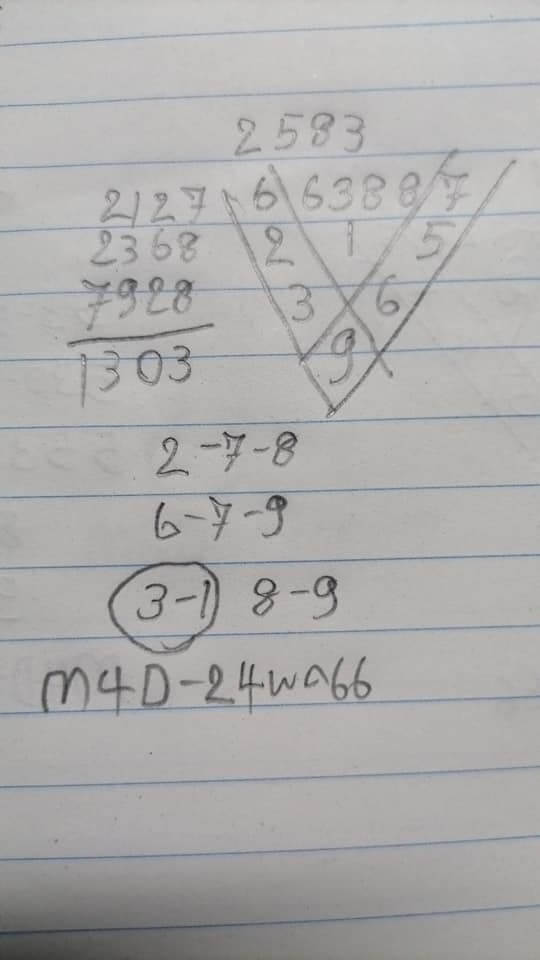 2583
2127
2368
7928
1303
6 6388 7
2 1 5
3 6
9
2-7-8
6-7-9
3-1 8-9
M4D-24wa66